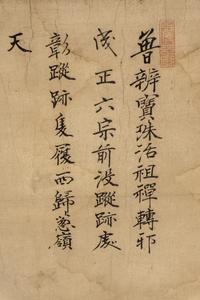 曾辨寶珠治祖禪轉邪
成正六宗前没蹤跡處
彰蹤跡隻履西歸葱嶺
天